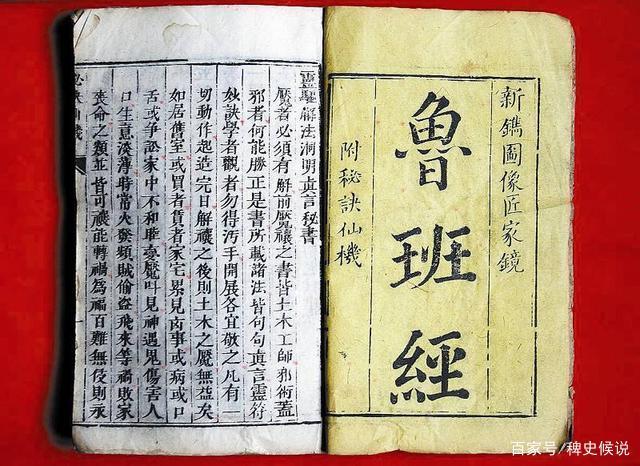 新鐫圖像匠家鏡
魯班經
附秘訣仙機
靈驅解法洞明真言秘書
魘者必須有解前魘禳之書皆土木工師邪術蓋
邪者何能勝正是書所載諸法皆句句真言靈符
妙訣學者觀者勿得污手開展各宜敬之凡有一
切動作起造完日解禳之後則土木之魘無益矣
如居舊室或買者賃者家宅累見凶事或病或口
舌或爭訟家中不和睡寢魘叶見神遇鬼傷害人
口生意薄時常火燭頻賊偷盜飛來等禍敗家
喪命之類並皆可禳能轉禍爲福百難無侵則永
秘訣仙機
百家号/稗史候说